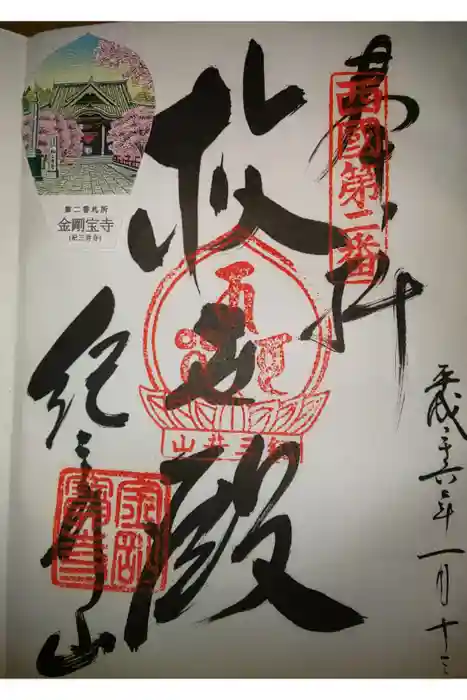 奉拝
西國第二番
平成二十六年一月十三
救世殿
紀三井山
紀三井山
金剛宝寺
第二番札所
金剛宝寺
(紀三井寺)